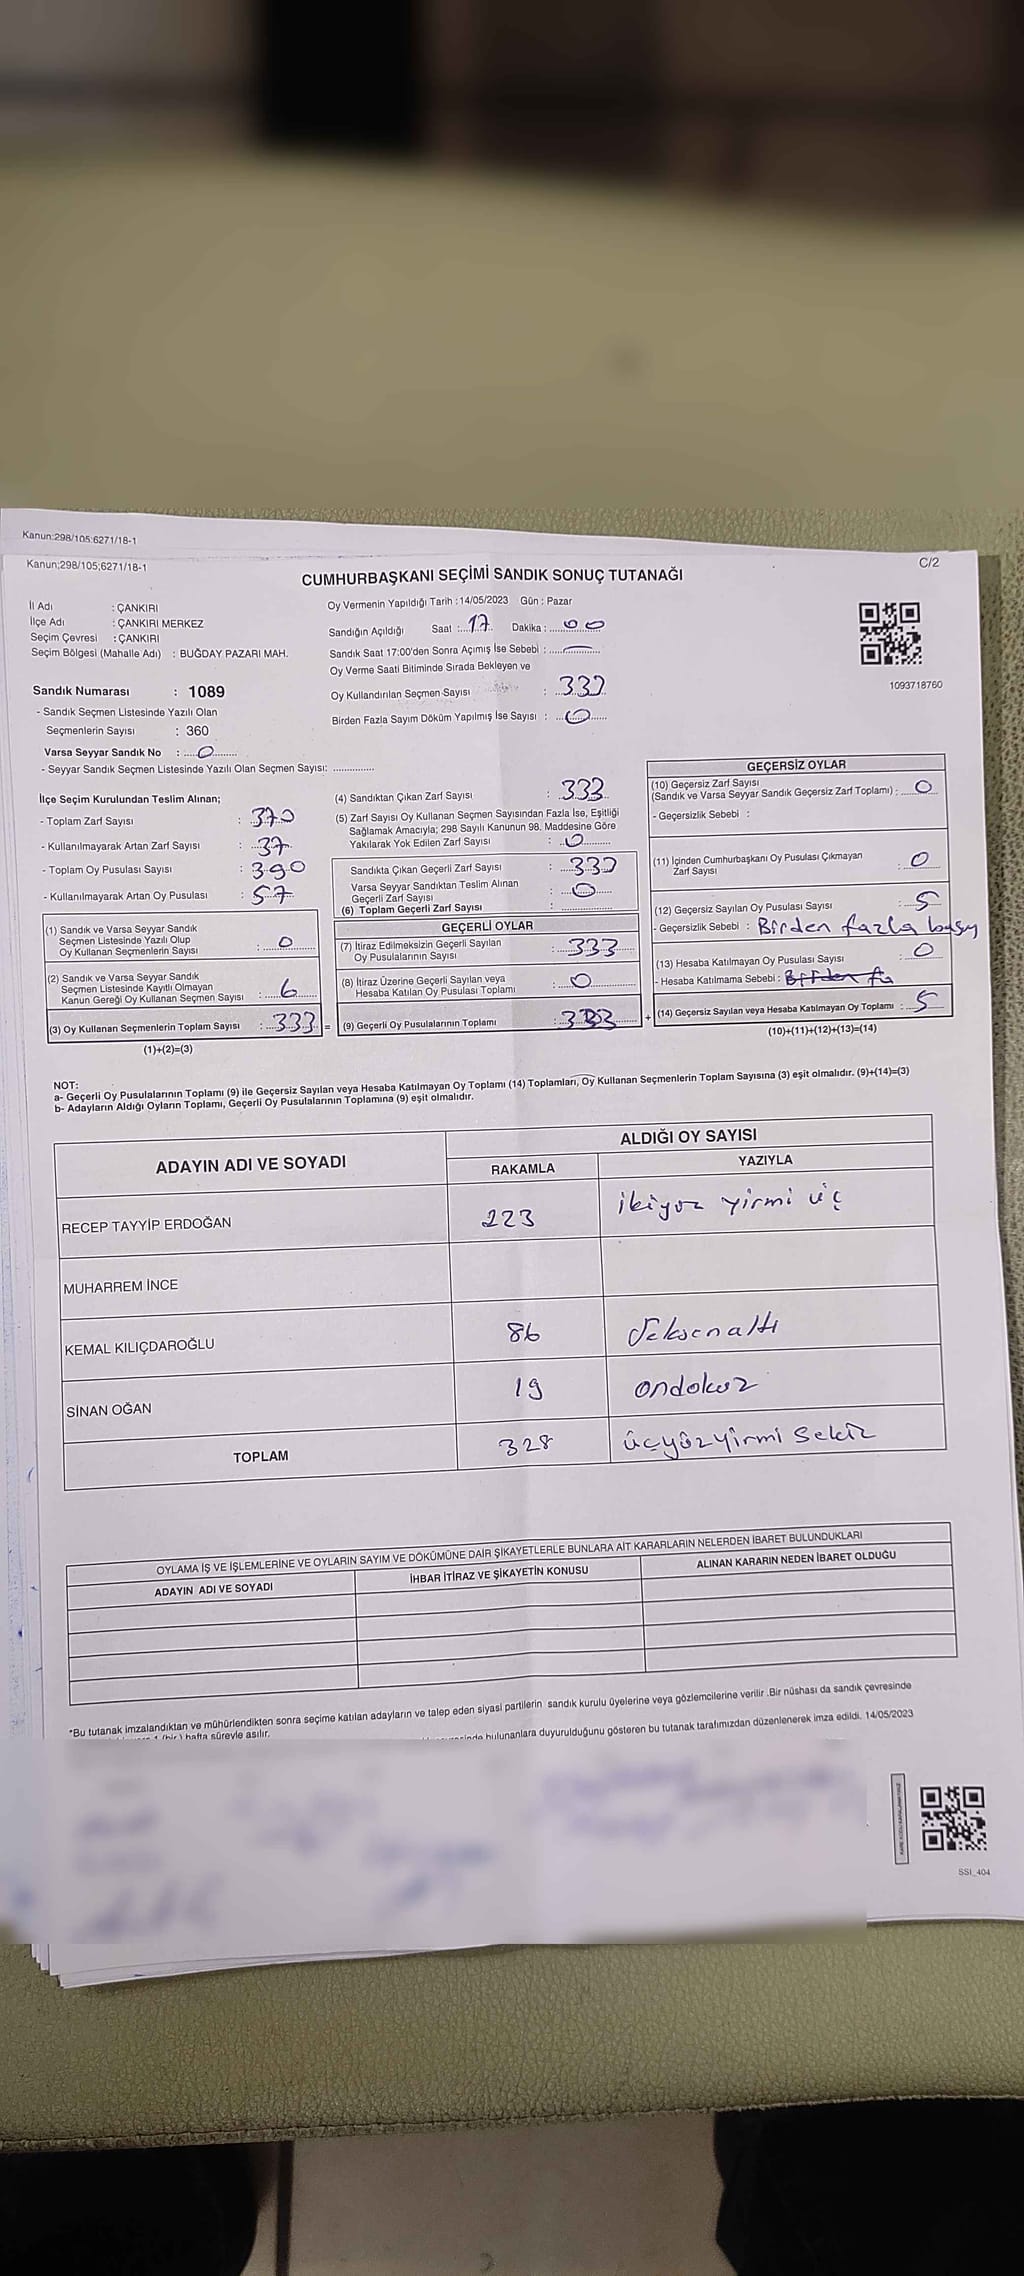 Kanun:298/105;6271/18-1
Kanun;298/105;6271/18-1
C/2
CUMHURBAŞKANI SEÇİMİ SANDIK SONUÇ TUTANAĞI
İl Adı : ÇANKIRI
İlçe Adı : ÇANKIRI MERKEZ
Seçim Çevresi : ÇANKIRI
Seçim Bölgesi (Mahalle Adı) : BUĞDAY PAZARI MAH.
Sandık Numarası : 1089
- Sandık Seçmen Listesinde Yazılı Olan
Seçmenlerin Sayısı : 360
Varsa Seyyar Sandık No : 0
- Seyyar Sandık Seçmen Listesinde Yazılı Olan Seçmen Sayısı:
Oy Vermenin Yapıldığı Tarih : 14/05/2023 Gün : Pazar
Sandığın Açıldığı Saat : 17 Dakika : 00
Sandık Saat 17:00'den Sonra Açımış İse Sebebi :
Oy Verme Saati Bitiminde Sırada Bekleyen ve
Oy Kullandırılan Seçmen Sayısı :
Birden Fazla Sayım Döküm Yapılmış İse Sayısı : 0
1093718760
İlçe Seçim Kurulundan Teslim Alınan;
- Toplam Zarf Sayısı : 370
- Kullanılmayarak Artan Zarf Sayısı : 37
- Toplam Oy Pusulası Sayısı : 390
- Kullanılmayarak Artan Oy Pusulası : 57
(1) Sandık ve Varsa Seyyar Sandık
Seçmen Listesinde Yazılı Olup
Oy Kullanan Seçmenlerin Sayısı : 0
(2) Sandık ve Varsa Seyyar Sandık
Seçmen Listesinde Kayıtlı Olmayan
Kanun Gereği Oy Kullanan Seçmen Sayısı : 6
(3) Oy Kullanan Seçmenlerin Toplam Sayısı : 333 =
(1)+(2)=(3)
(4) Sandıktan Çıkan Zarf Sayısı : 333
(5) Zarf Sayısı Oy Kullanan Seçmen Sayısından Fazla İse, Eşitliği
Sağlamak Amacıyla; 298 Sayılı Kanunun 98. Maddesine Göre
Yakılarak Yok Edilen Zarf Sayısı : 0
Sandıkta Çıkan Geçerli Zarf Sayısı : 333
Varsa Seyyar Sandıktan Teslim Alınan
Geçerli Zarf Sayısı : 0
(6) Toplam Geçerli Zarf Sayısı :
GEÇERLİ OYLAR
(7) İtiraz Edilmeksizin Geçerli Sayılan
Oy Pusulalarının Sayısı : 333
(8) İtiraz Üzerine Geçerli Sayılan veya
Hesaba Katılan Oy Pusulası Toplamı : 0
(9) Geçerli Oy Pusulalarının Toplamı : +
GEÇERSİZ OYLAR
(10) Geçersiz Zarf Sayısı
(Sandık ve Varsa Seyyar Sandık Geçersiz Zarf Toplamı) : 0
- Geçersizlik Sebebi :
(11) İçinden Cumhurbaşkanı Oy Pusulası Çıkmayan
Zarf Sayısı : 0
(12) Geçersiz Sayılan Oy Pusulası Sayısı : 5
- Geçersizlik Sebebi : Birden fazla
(13) Hesaba Katılmayan Oy Pusulası Sayısı : 0
- Hesaba Katılmama Sebebi : Birden fa
(14) Geçersiz Sayılan veya Hesaba Katılmayan Oy Toplamı : 5
(10)+(11)+(12)+(13)=(14)
NOT:
a- Geçerli Oy Pusulalarının Toplamı (9) ile Geçersiz Sayılan veya Hesaba Katılmayan Oy Toplamı (14) Toplamları, Oy Kullanan Seçmenlerin Toplam Sayısına (3) eşit olmalıdır. (9)+(14)=(3)
b- Adayların Aldığı Oyların Toplamı, Geçerli Oy Pusulalarının Toplamına (9) eşit olmalıdır.
ADAYIN ADI VE SOYADI
ALDIĞI OY SAYISI
RAKAMLA YAZIYLA
RECEP TAYYİP ERDOĞAN 223 ikiyüz yirmi üç
MUHARREM İNCE
KEMAL KILIÇDAROĞLU 86 Seksenaltı
SİNAN OĞAN 19 ondokuz
TOPLAM 328 üçyüzyirmi sekiz
OYLAMA İŞ VE İŞLEMLERİNE VE OYLARIN SAYIM VE DÖKÜMÜNE DAİR ŞİKAYETLERLE BUNLARA AİT KARARLARIN NELERDEN İBARET BULUNDUKLARI
ADAYIN ADI VE SOYADI İHBAR İTİRAZ VE ŞİKAYETİN KONUSU ALINAN KARARIN NEDEN İBARET OLDUĞU
*Bu tutanak imzalandıktan ve mühürlendikten sonra seçime katılan adayların ve talep eden siyasi partilerin sandık kurulu üyelerine veya gözlemcilerine verilir .Bir nüshası da sandık çevresinde
1 (bir) hafta süreyle asılır.
bulunanlara duyurulduğunu gösteren bu tutanak tarafımızdan düzenlenerek imza edildi. 14/05/2023
SSI_404